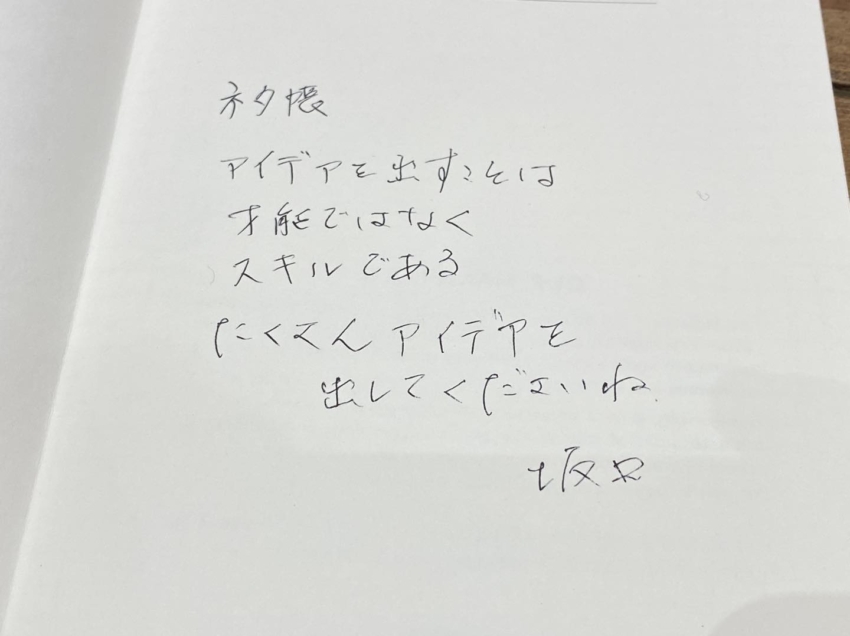 ネタ帳
アイデアを出すことは
才能ではなく
スキルである
たくさんアイデアを
出してくださいね